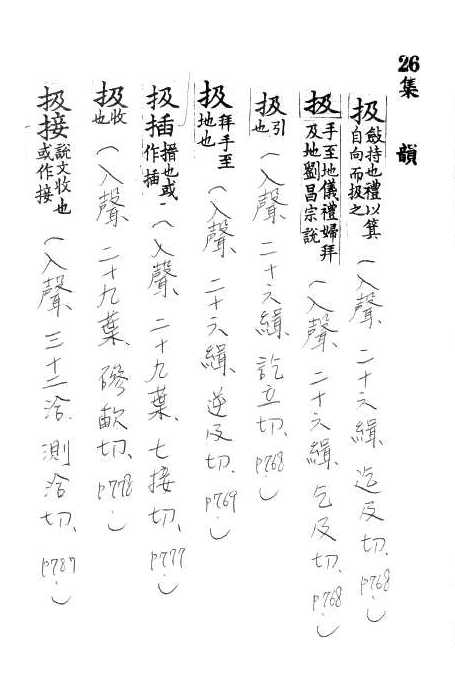 26集韻
扱斂持也禮以箕自向而扱之（入聲、二十六緝、迄及切、P768。）
扱手至地儀禮婦拜及地劉昌宗說（入聲、二十六緝、乞及切、P768。）
扱引也（入聲、二十六緝、訖立切、P768。）
扱拜手至地也（入聲、二十六緝、逆及切、P769。）
扱插揷也或作插（入聲、二十九葉、七接切、P777。）
扱收也（入聲、二十九葉、磣歃切、P778。）
扱接說文收也或作接（入聲、三十二洽、測洽切、P787。）